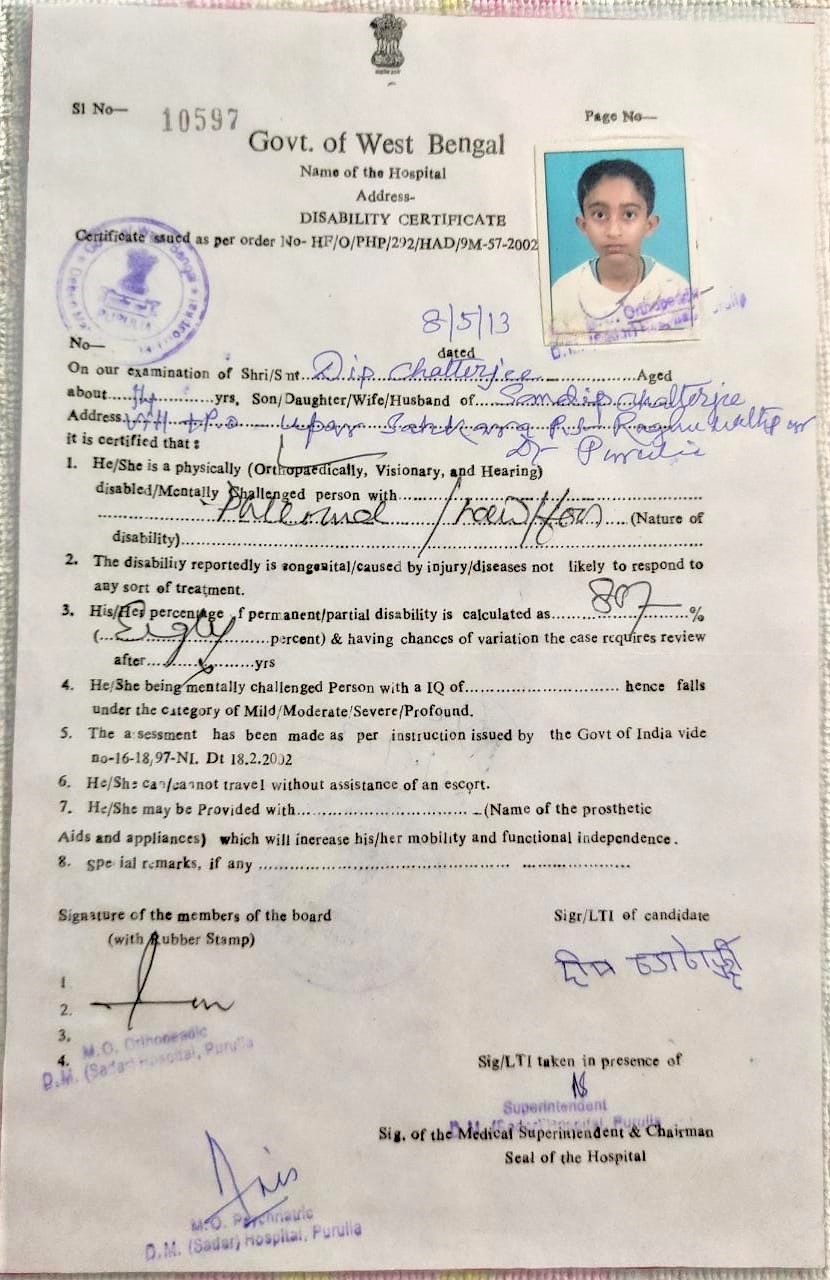 Sl No— 10597
Page No—
Govt. of West Bengal
Name of the Hospital
Address-
DISABILITY CERTIFICATE
Certificate issued as per order No- HF/O/PHP/292/HAD/9M-57-2002
PURULIA
M.O. Orthopaedic
D.M. (Sadar) Hospital, Purulia
8/5/13
No—
dated
On our examination of Shri/Smt. Dip Chatterjee Aged
about yrs, Son/Daughter/Wife/Husband of Sandip Chatterjee
Address Vill + P.O - Upar P.S. Raghunathpur
Dt Purulia
it is certified that :
1. He/She is a physically (Orthopaedically, Visionary, and Hearing)
disabled/Mentally Challenged person with
(Nature of
disability)
2. The disability reportedly is congenital/caused by injury/diseases not likely to respond to
any sort of treatment.
3. His/Her percentage of permanent/partial disability is calculated as 80 %
(Eighty percent) & having chances of variation the case requires review
after yrs
4. He/She being mentally challenged Person with a IQ of hence falls
under the category of Mild/Moderate/Severe/Profound.
5. The assessment has been made as per instruction issued by the Govt of India vide
no-16-18,97-NI. Dt 18.2.2002
6. He/She can/cannot travel without assistance of an escort.
7. He/She may be Provided with (Name of the prosthetic
Aids and appliances) which will increase his/her mobility and functional independence.
8. special remarks, if any
Signature of the members of the board
Sigr/LTI of candidate
(with Rubber Stamp)
দীপ চ্যাটার্জী
1
2.
3.
4.
M.O. Orthopeadic
D.M. (Sadar) Hospital, Purulia
Sig/LTI taken in presence of
Superintendent
D.M. (Sadar) Hospital, Purulia
Sig. of the Medical Superintendent & Chairman
Seal of the Hospital
M.O. Psychriatric
D.M. (Sadar) Hospital, Purulia